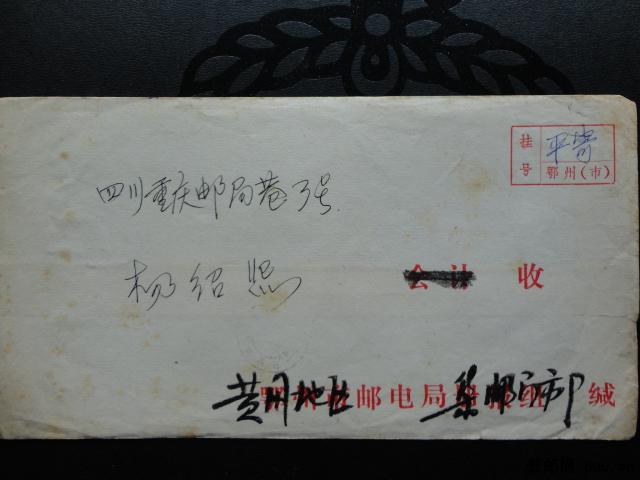 挂号 平寄
鄂州(市)
四川重庆邮局巷3号
杨绍
会计 收
黄州地区 邮电局 集邮门市部 缄